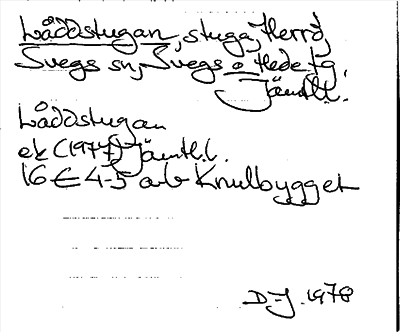 Låddstugan, stuga, Herrö,
Svegs sn, Svegs o Hede tg,
Jämtl.l.
Låddstugan
ek (1977) Jämtl.l.
16 E 4-5 ab Knulbygget
D-J 1978